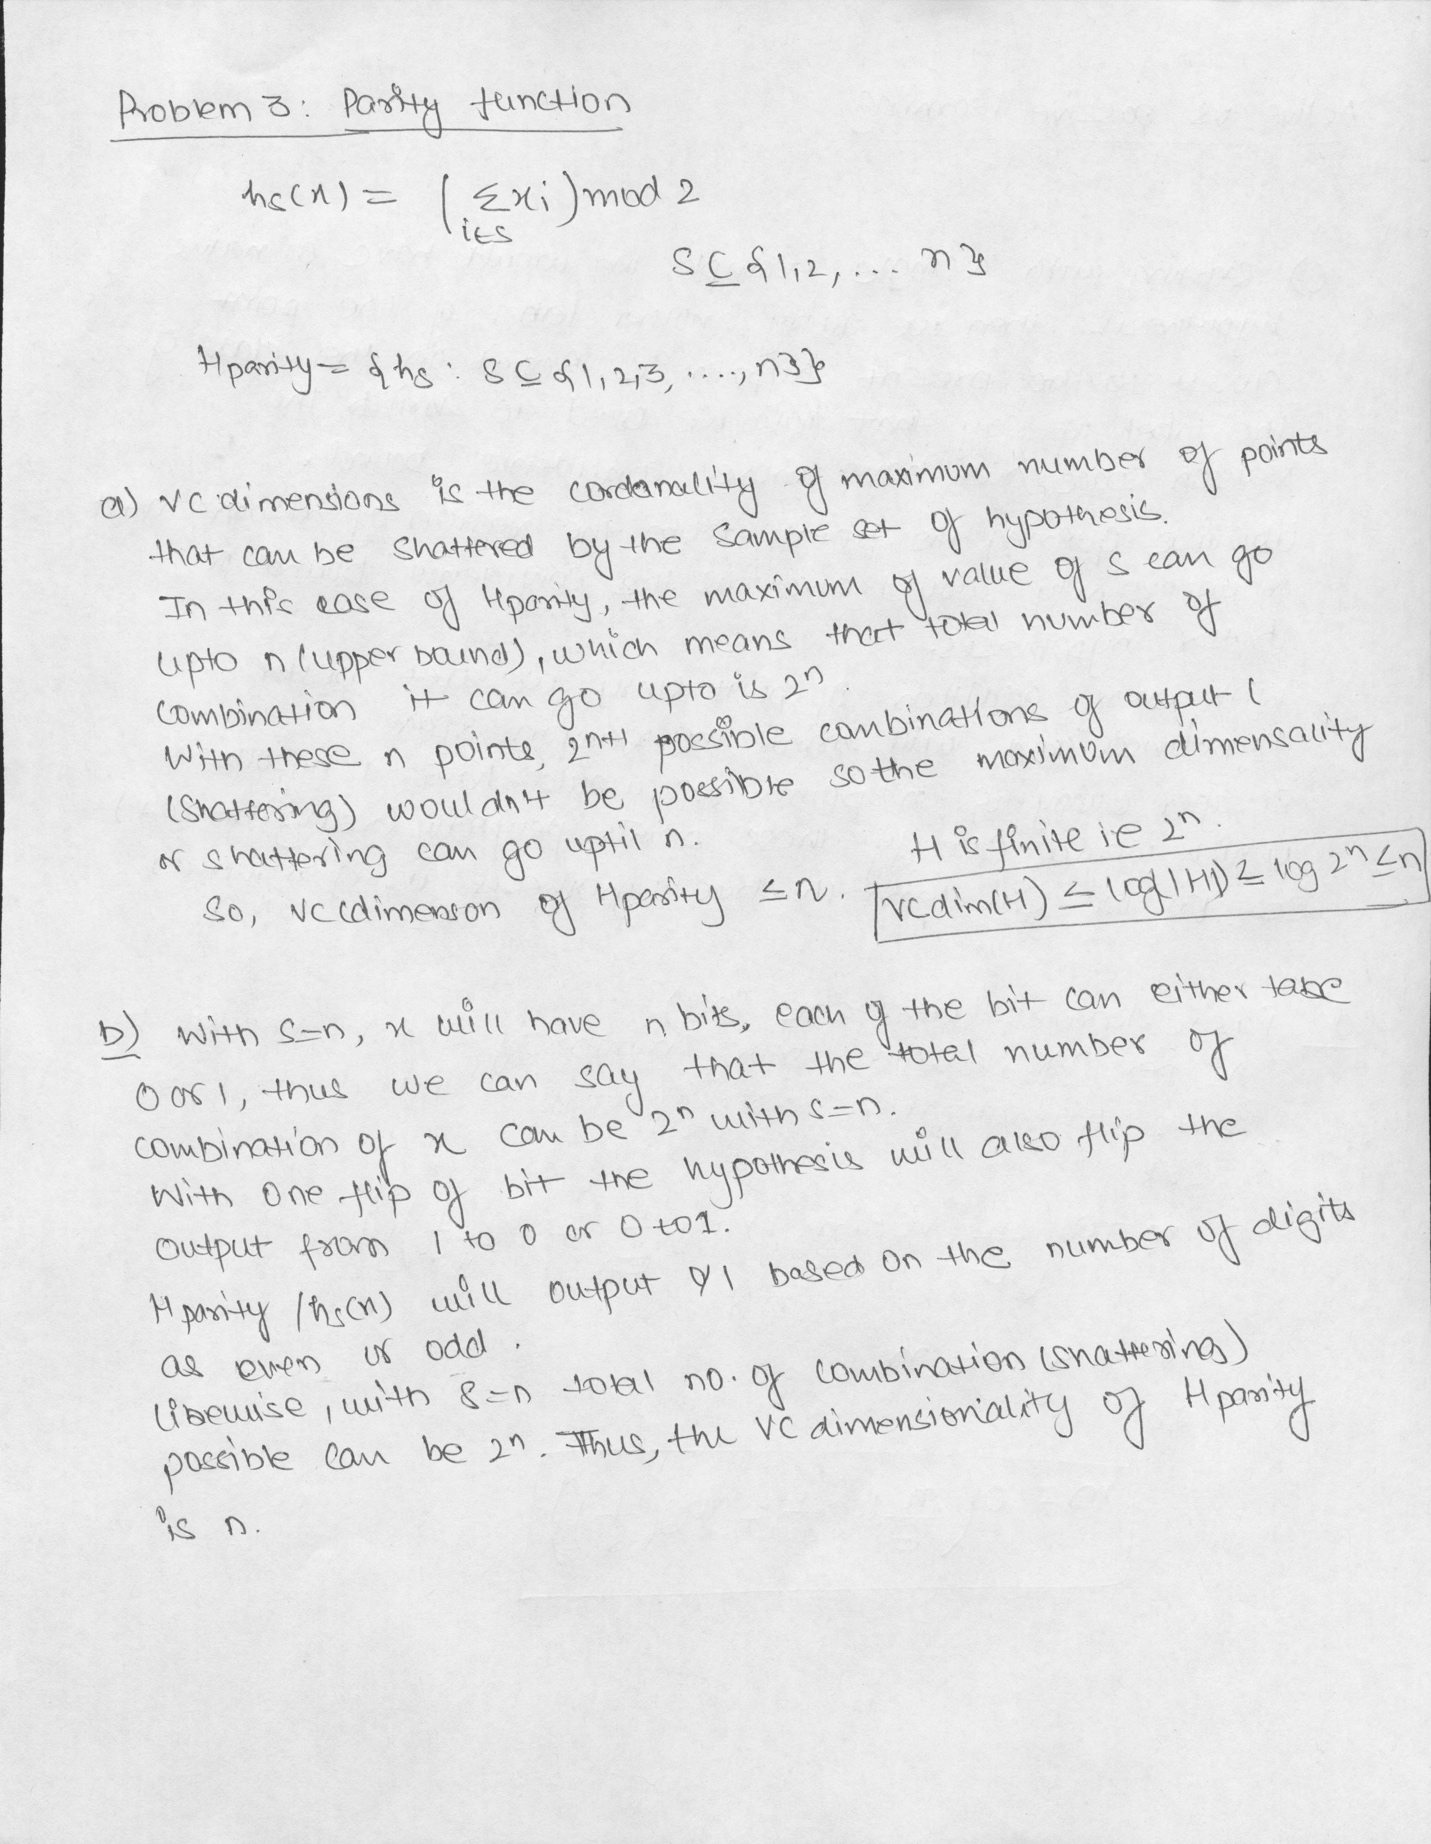 Problem 3: Parity function
hs(x) = ( Σxi ) mod 2
i∈S
S ⊆ {1,2, ... n}
Hparity = {hs : S ⊆ {1,2,3, ...., n}}
a) VC dimensions is the cordanality of maximum number of points
that can be shattered by the sample set of hypothesis.
In this case of Hparity, the maximum of value of s can go
upto n (upper bound), which means that total number of
combination it can go upto is 2^n.
With these n points, 2^n+1 possible combinations of output (
(shattering) wouldn't be possible so the maximum dimensality
or shattering can go uptil n.
H is finite ie 2^n.
So, vc cdimenson of Hparity ≤ n. vcdim(H) ≤ log(|H|) ≤ log 2^n ≤ n
b) With s=n, x will have n bits, each of the bit can either take
0 or 1, thus we can say that the total number of
combination of x can be 2^n with s=n.
With one flip of bit the hypothesis will also flip the
output from 1 to 0 or 0 to 1.
Hparity /hs(x) will output 0/1 based on the number of digits
as even or odd.
Likewise, with s=n total no. of combination (shattering)
possible can be 2^n. Thus, the VC dimensionality of Hparity
is n.